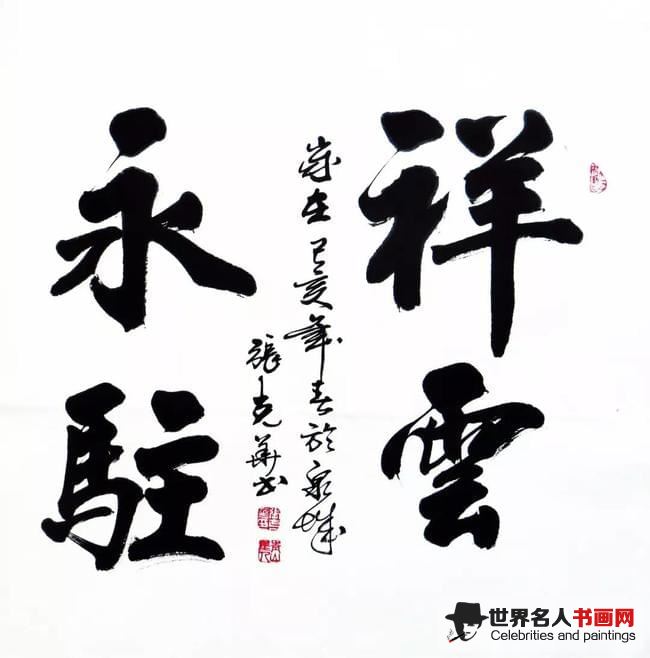 祥雲
永駐
歲在己亥年春於泉城
張克華書
世界名人书画网
Celebrities and paintings